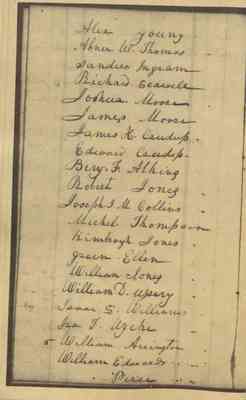 Alex Young
Abner W. Thomas
Sandies Ingram
Richard
Joshua Moore
James Moore
James H. Caudup.
Edward Caudup.
Benj. F. Atkins
Robert Jones
Joseph J. M. Collins
Michel Thompson
Kimbrogh Jones
Green Ellen
William Jones
William D. Upsery
Isaac S. Williams
William Arrington
William Edwards
Pierce